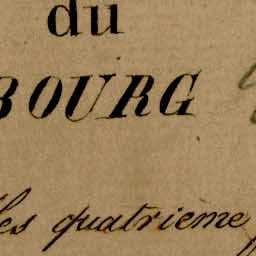 du
BOURG
les quatrieme